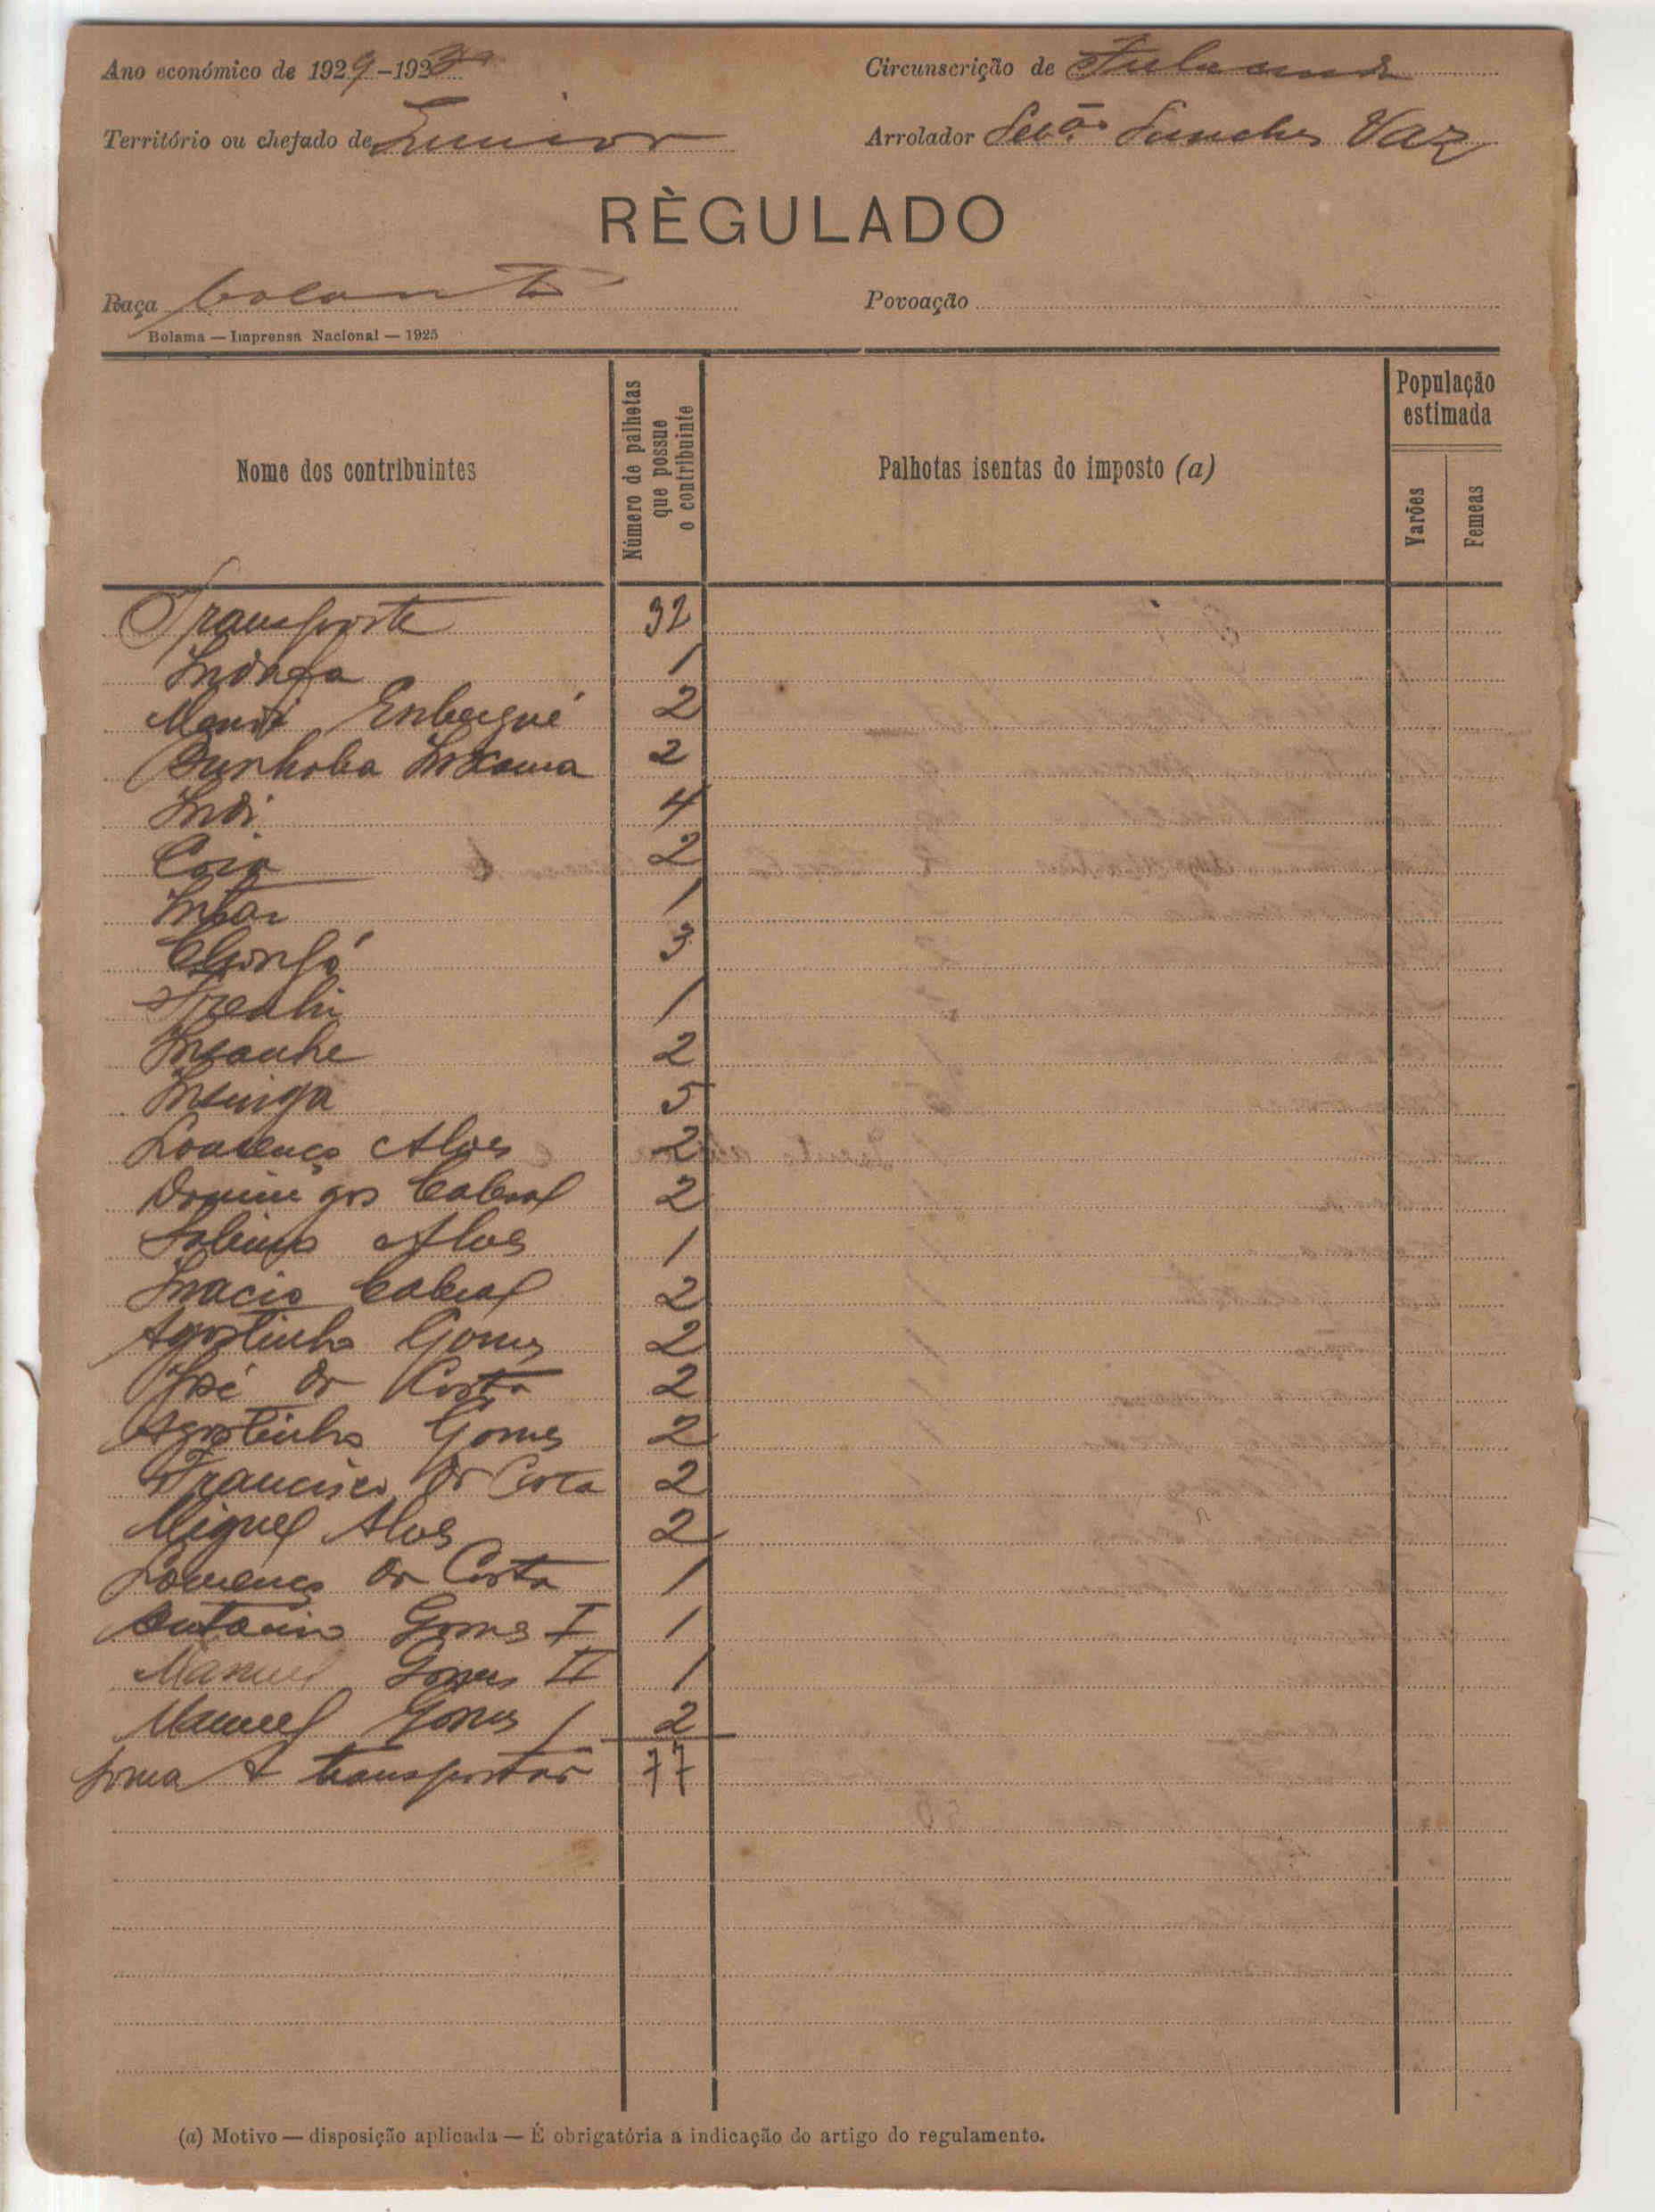 Ano económico de 1929-1930
Circunscrição de Fulacunda
Território ou chefado de Junior
Arrolador Seb.ão Sanches Vaz
RÈGULADO
Raça balanta
Povoação
Bolama — Imprensa Nacional — 1925
Nome dos contribuintes
Número de palhetas que possue o contribuinte
Palhotas isentas do imposto (a)
População estimada
Varões
Femeas
Transporte 32
Indafa 1
Enbugué 2
2
Indi 4
2
1
3
1
2
5
Lourenço Alves 2
Domingos Cabral 2
Sabino Alves 1
Inacio Cabral 2
Agostinho Gomes 2
José da Costa 2
Agostinho Gomes 2
Francisco da Costa 2
Miguel Alves 2
Lourenço da Costa 1
Antonio Gomes I 1
Manuel Gomes II 1
Manuel Gomes I 2
Soma A transportar 77
(a) Motivo — disposição aplicada — É obrigatória a indicação do artigo do regulamento.